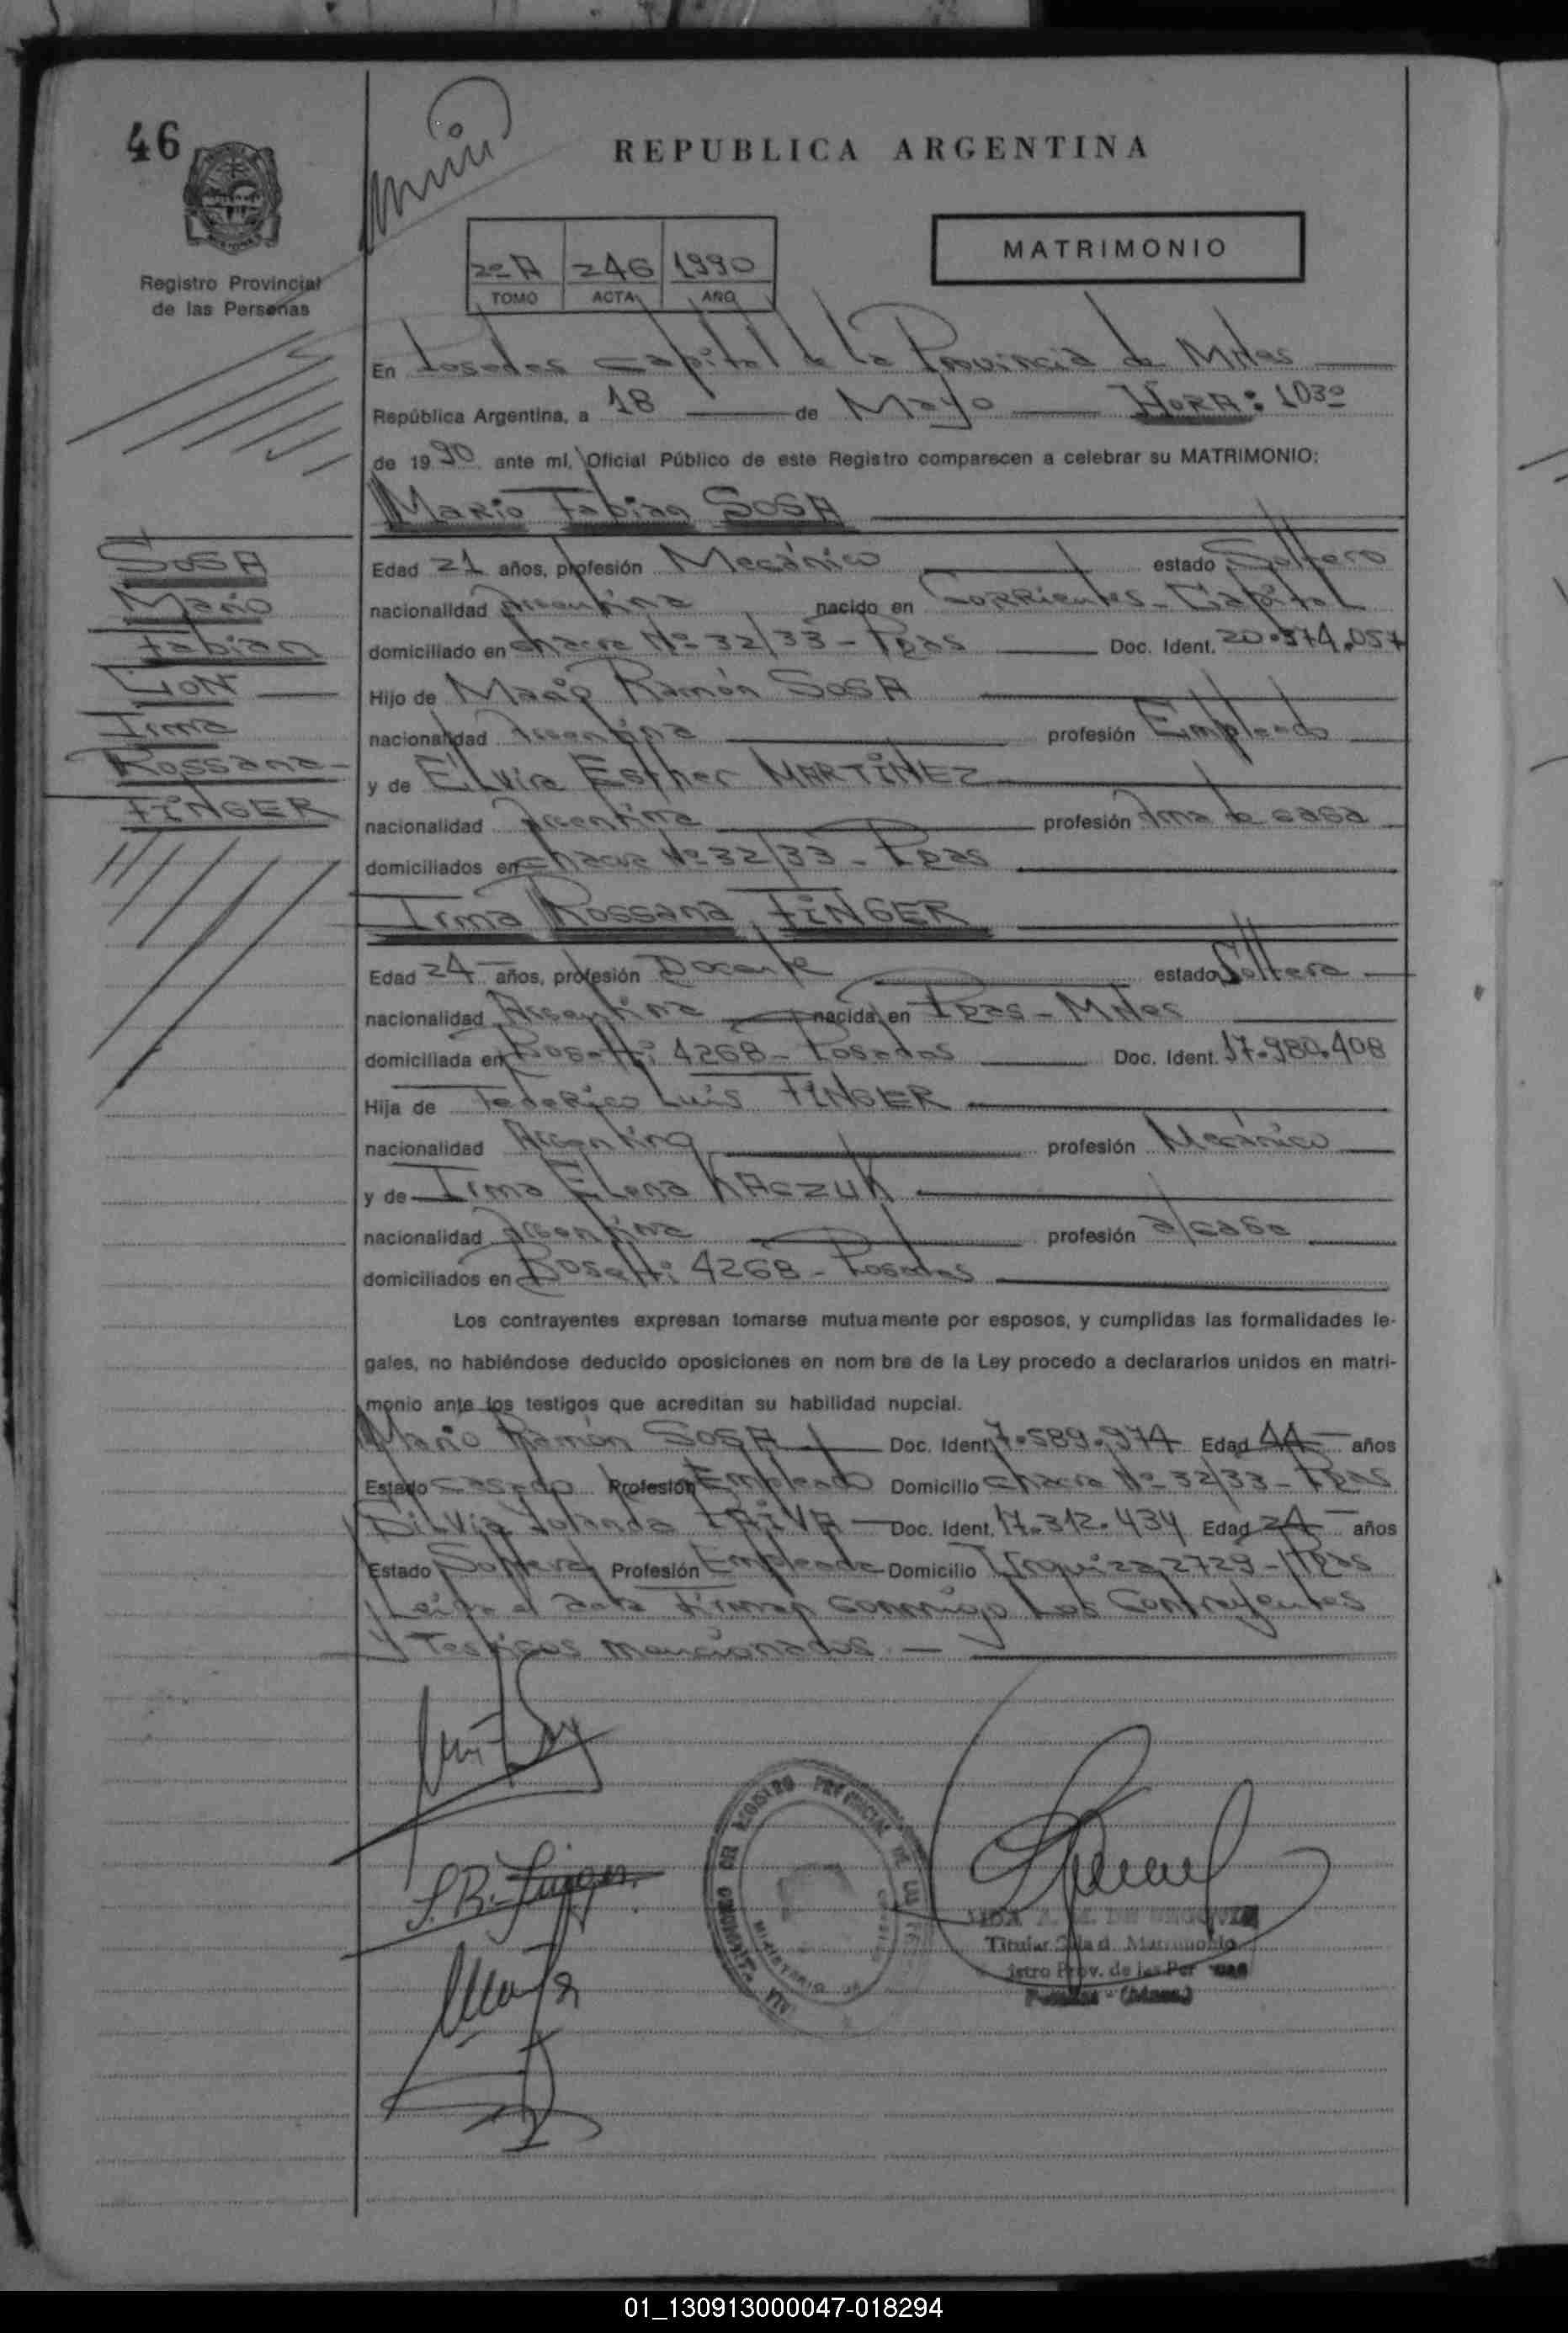 46
REPUBLICA ARGENTINA
MATRIMONIO
2º A 246 1990
TOMO ACTA AÑO
Registro Provincial
de las Personas
En Posadas Capital de la Provincia de Mnes
República Argentina, a 18 de Mayo HORA: 1030
de 1990 ante mí, Oficial Público de este Registro comparecen a celebrar su MATRIMONIO:
Mario Fabian SOSA
SOSA
Mario
Fabian
CON
Irma
Rossana
FINGER
Edad 21 años, profesión Mecánico estado Soltero
nacionalidad Argentina nacido en Corrientes - Capital
domiciliado en chacra Nº 32/33 - Pdas Doc. Ident. 20.374.057
Hijo de Mario Ramón SOSA
nacionalidad Argentina profesión Empleado
y de Elvira Esther MARTINEZ
nacionalidad Argentina profesión Ama de casa
domiciliados en chacra Nº 32/33 - Pdas
Irma Rossana FINGER
Edad 24 años, profesión Docente estado Soltera
nacionalidad Argentina nacida en Pdas - Mnes
domiciliada en Rosetti 4268 - Posadas Doc. Ident. 17.980.408
Hija de Federico Luis FINGER
nacionalidad Argentino profesión Mecánico
y de Irma Elena KACZUK
nacionalidad Argentina profesión a/casa
domiciliados en Rosetti 4268 - Posadas
Los contrayentes expresan tomarse mutuamente por esposos, y cumplidas las formalidades le-
gales, no habiéndose deducido oposiciones en nom bre de la Ley procedo a declararlos unidos en matri-
monio ante los testigos que acreditan su habilidad nupcial.
Mario Ramón SOSA Doc. Ident. 7.589.974 Edad 44 años
Estado casado Profesión Empleado Domicilio chacra Nº 32/33 - Pdas
Silvia Yolanda PAIVA Doc. Ident. 17.312.434 Edad 24 años
Estado Soltera Profesión Empleada Domicilio Urquiza 2729 - Pdas
Leida el acta firman conmigo los Contrayentes
y Testigos mencionados
I.R. Finger
REGISTRO PROVINCIAL DE LAS
MINISTERIO DE
DE SEGOVIA
Titular Matrimonio
Prov. de las Per
Posadas - (Mnes.)
01_130913000047-018294